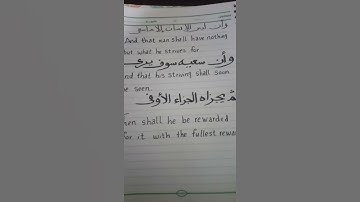 وأن ليس للإنسان إلا ما سعى
And that man shall have nothing
but what he strives for
وأن سعيه سوف يرى
and that his striving shall soon
be seen
ثم يجزاه الجزاء الأوفى
shall he be rewarded
for it with the fullest